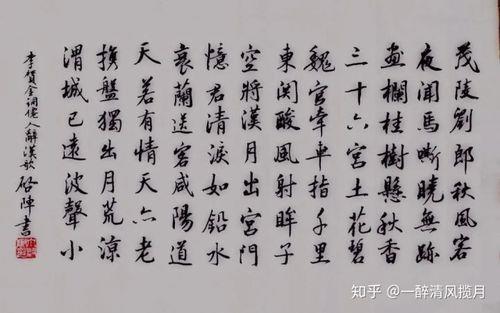 茂陵劉郎秋風客
夜闻馬嘶曉無跡
畫欄桂樹懸秋香
三十六宮土花碧
魏官牽車指千里
東関酸風射眸子
空將漢月出宮門
憶君清淚如鉛水
衰蘭送客咸陽道
天若有情天亦老
携盤獨出月荒涼
渭城已遠波聲小
李賀金铜僊人辭漢歌 啓陣書
知乎 @一醉清风揽月